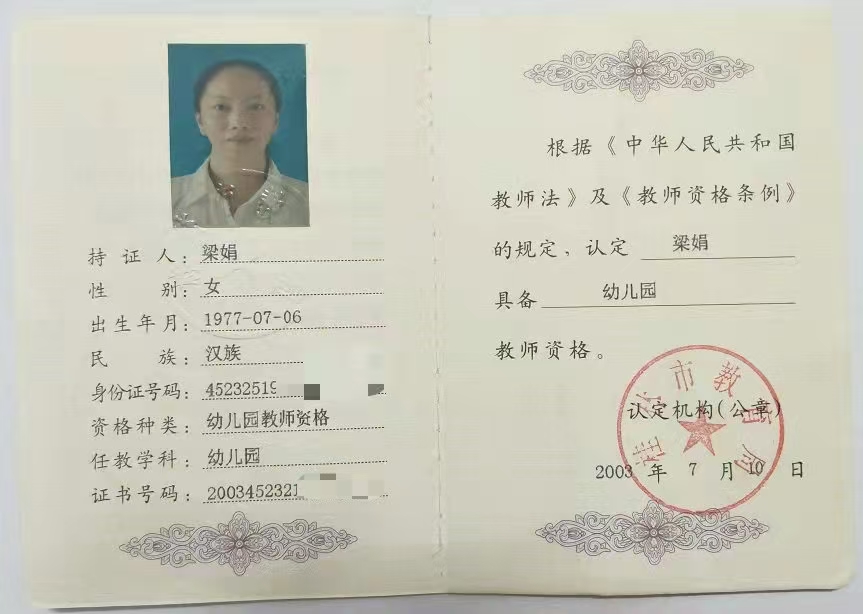 持证人：梁娟
性别：女
出生年月：1977-07-06
民族：汉族
身份证号码：45232519
资格种类：幼儿园教师资格
任教学科：幼儿园
证书号码：2003452321
根据《中华人民共和国
教师法》及《教师资格条例》
的规定，认定 梁娟
具备 幼儿园
教师资格。
市教育局
认定机构(公章)
2003 年 7 月 10 日